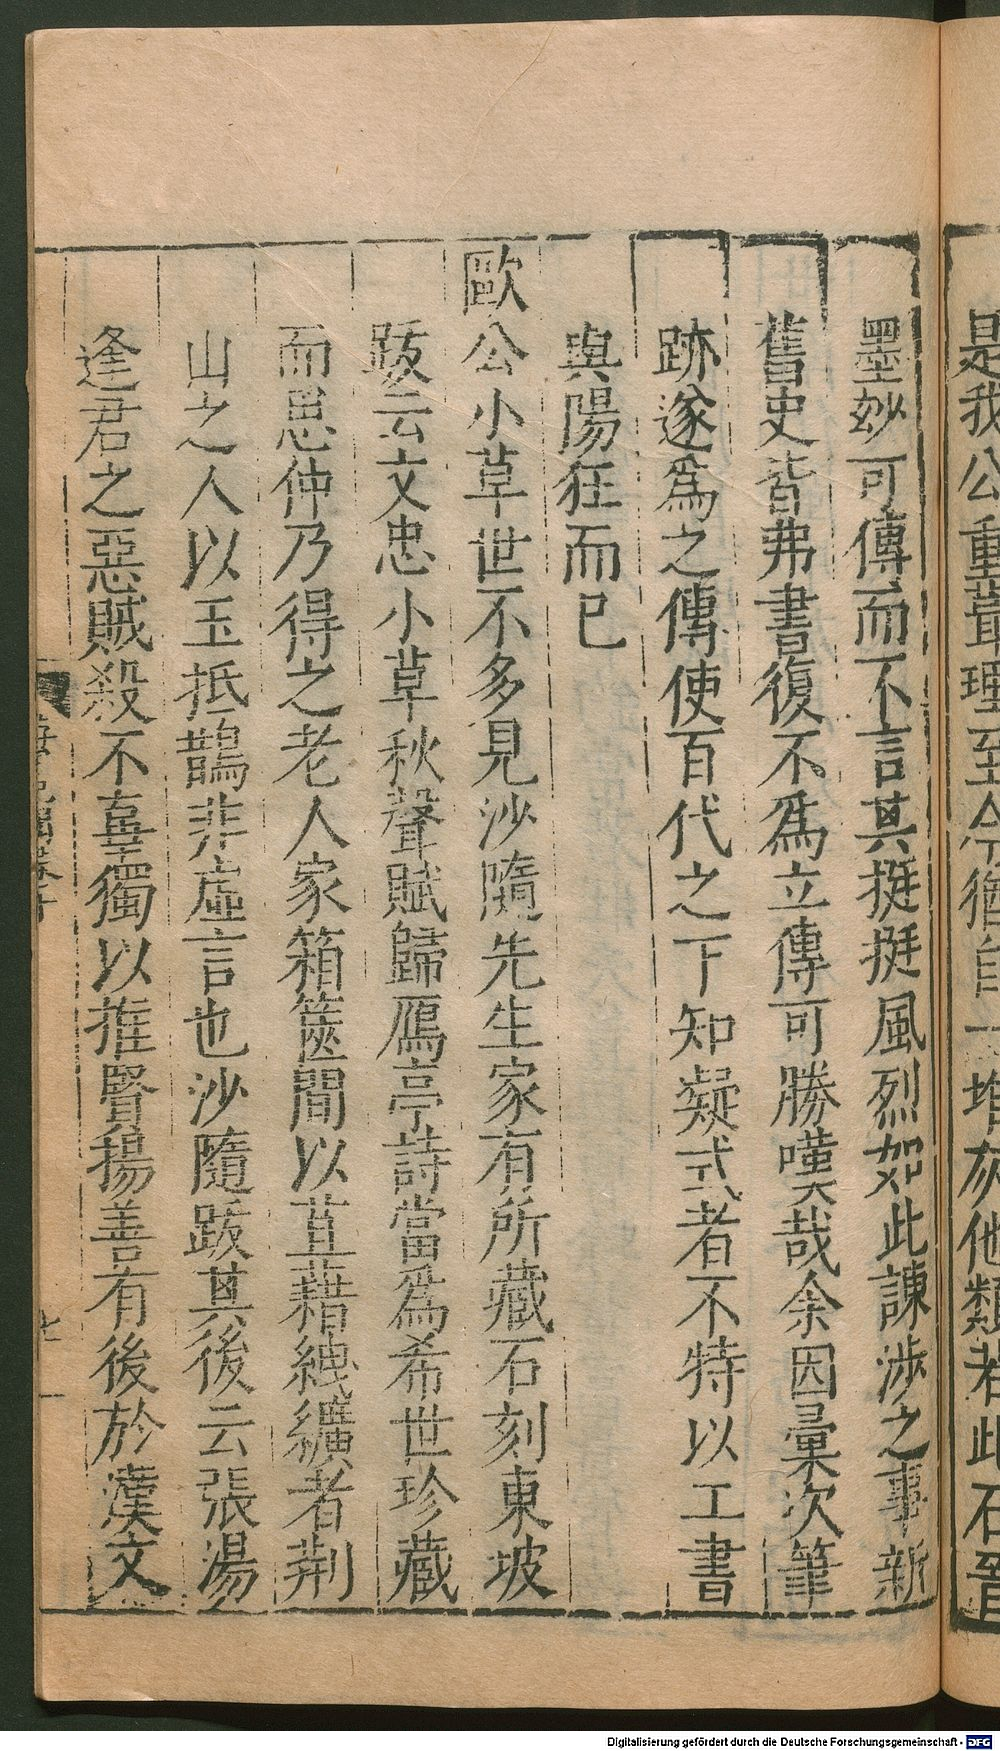 是我公重
理至今猶自一堆灰他類若此石晉
墨妙可傳而不言其挺挺風烈如此諫涉之事新
舊史皆弗書復不為立傳可勝嘆哉余因彙次筆
跡遂爲之傳使百代之下知凝式者不特以工書
與陽狂而已
歐公小草世不多見沙隨先生家有所藏石刻東坡
跋云文忠小草秋聲賦歸鴈亭詩當爲希世珍藏
而思仲乃得之老人家箱篋間以苴藉綫纊者荆
山之人以玉抵鵲非虛言也沙隨跋其後云張湯
逢君之惡賊殺不辜獨以推賢揚善有後於漢文
七
Digitalisierung gefördert durch die Deutsche Forschungsgemeinschaft - DFG